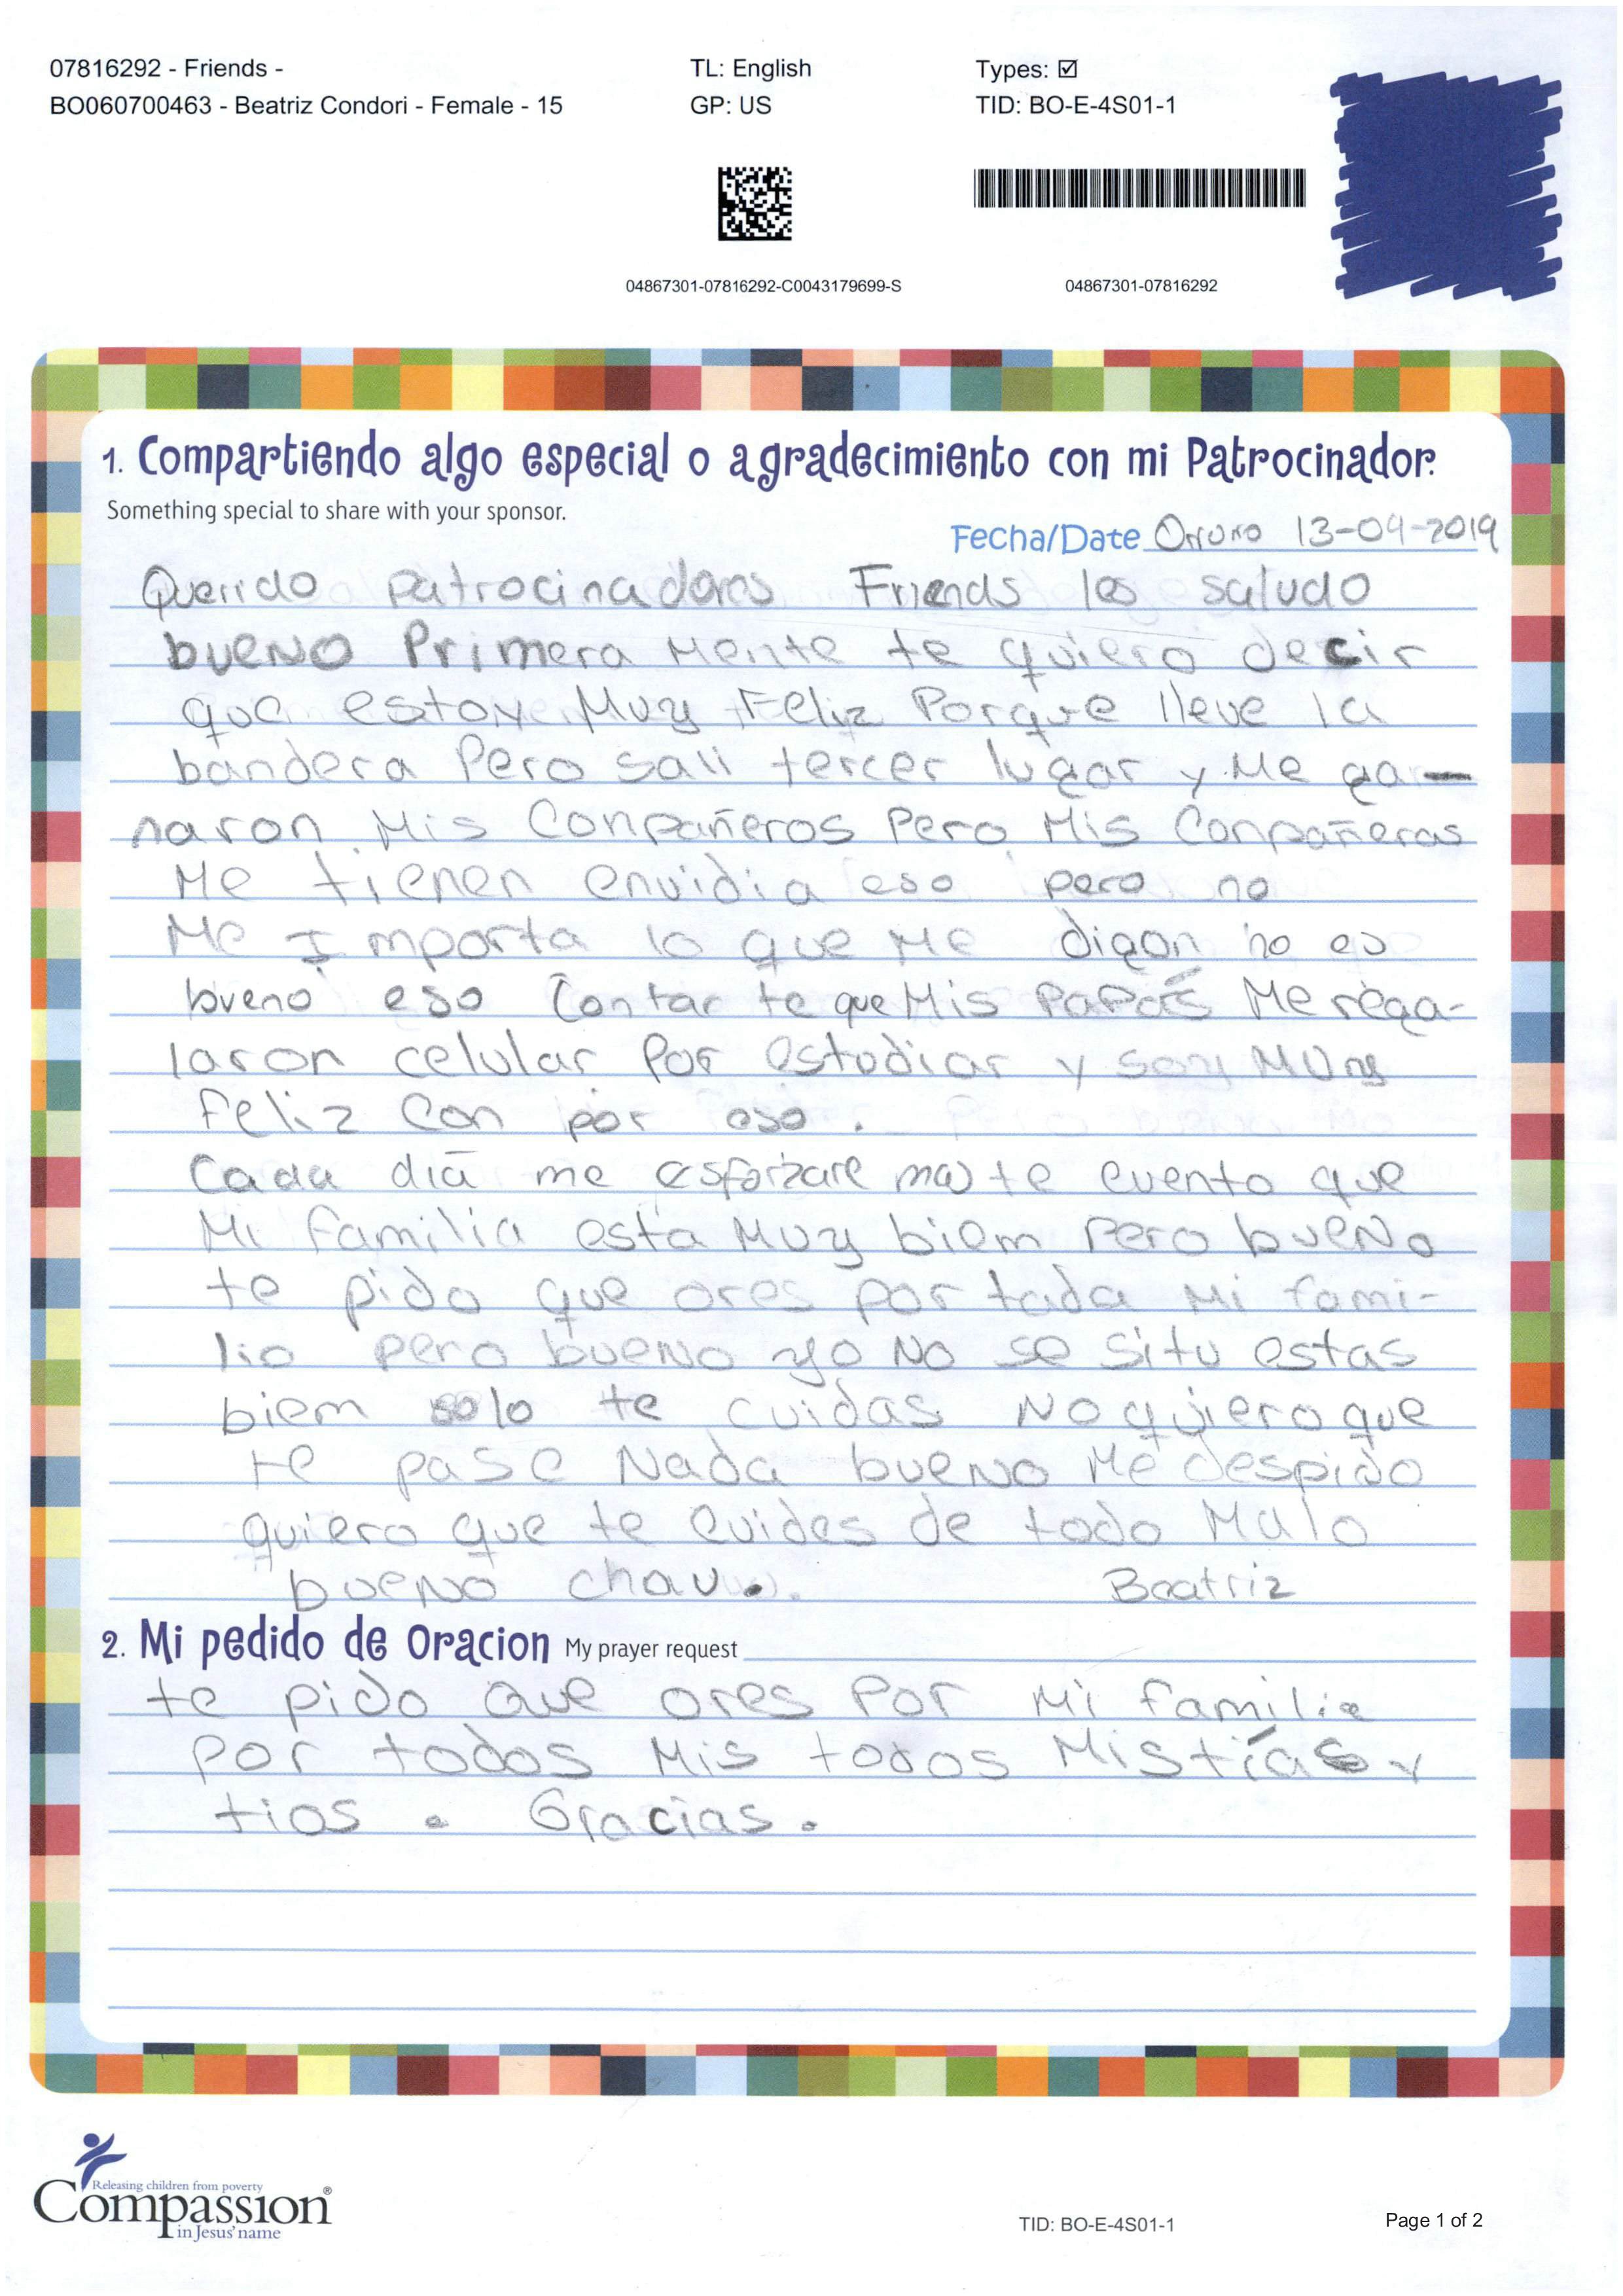 07816292 - Friends -
TL: English
Types: ☑
BO060700463 - Beatriz Condori - Female - 15
GP: US
TID: BO-E-4S01-1
04867301-07816292-C0043179699-S
04867301-07816292
1. Compartiendo algo especial o agradecimiento con mi Patrocinador.
Something special to share with your sponsor.
Fecha/Date Oruro 13-09-2019
Querido patrocinadores Friends les saludo
bueno Primera Mente te quiero decir
que estoy Muy Feliz Porque lleve la
bandera Pero sali tercer lugar y Me ga-
naron Mis Conpañeros Pero Mis Conpañeras
Me tienen envidia eso pero no
Me Importa lo que Me digan no es
bueno eso Contar te que Mis PaPás Me rega-
laron celular Por estudiar y soy Muy
Feliz Con por eso .
Cada dia me esforzare mas te cuento que
Mi familia esta Muy biem Pero bueno
te pido que ores por toda Mi fami-
lia pero bueno yo No se si tu estas
biem solo te cuidas No quiero que
te pase Nada bueno Me despido
quiero que te cuides de todo Malo
bueno chau. Beatriz
2. Mi pedido de Oracion My prayer request
te pido que ores Por Mi familia
Por todos Mis todos Mis tías y
tios . Gracias.
Releasing children from poverty
Compassion®
in Jesus' name
TID: BO-E-4S01-1
Page 1 of 2